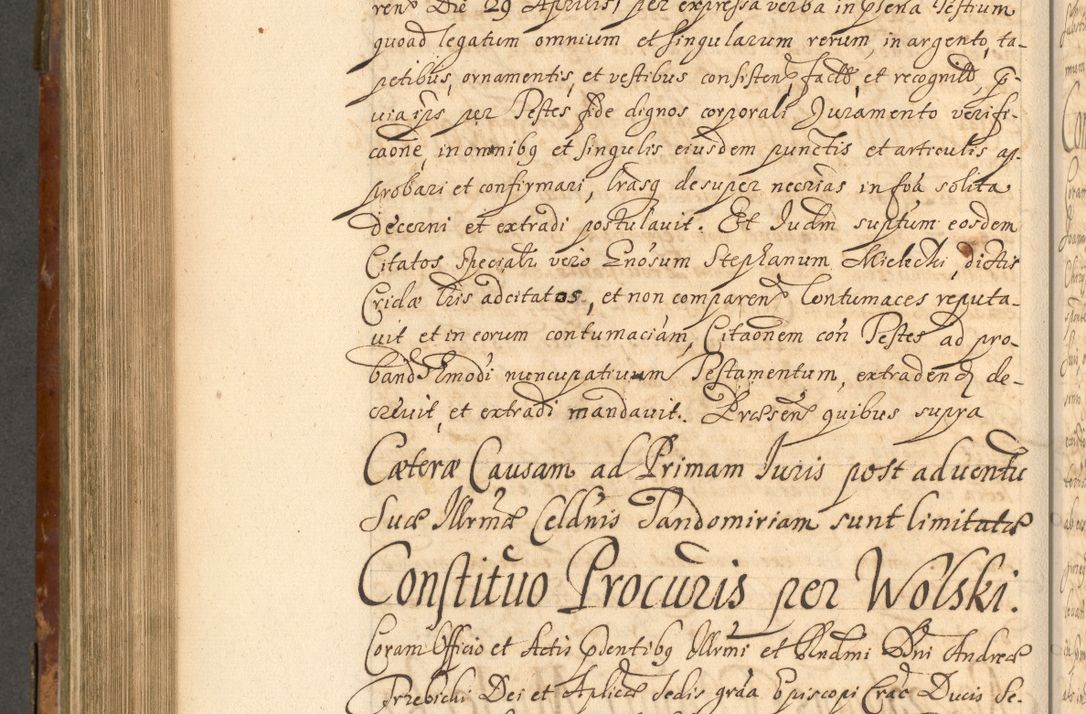 ren̄ Die 29 Aprilis, per expressa verba in p̄lena Testium
quoad legatum omnium et singularum rerum, in argento, ta-
petibus, ornamentis, et vestibus consisten̄, fact̄, et recognit̄, p̄-
via ip̄s per Testes fide dignos corporali Juramento verifi-
caōne, in omnibq et singulis eiusdem punctis et articulis ap-
probari et confirmari, lrasq desuper necrias in foā solita
decerni et extradi postulavit. Et Judm suptum eosdem
Citatos specialr vero Enosum Stephanum Mielecki, dictis
Cridæ lris adcitatos, et non comparen̄ Contumaces reputa-
vit et in eorum contumaciam, Citaōnem con Testes ad pro-
band̄ hmodi nuncupativum Testamentum, extradend de-
crevit, et extradi mandavit. Præsen̄ quibus supra
Cæteræ Causam ad Primam Juris post adventū
Suæ Illrmæ Celdnis Sandomiriam sunt limitatæ
Constituo Procuris per Wolski.
Coram Officio et Actis p̄sentibq Illrmi et Rndmi Dni Andreæ
Trzebicki Dei et Aplicæ Sedis grāa Episcopi Crac̄ Ducis Se-